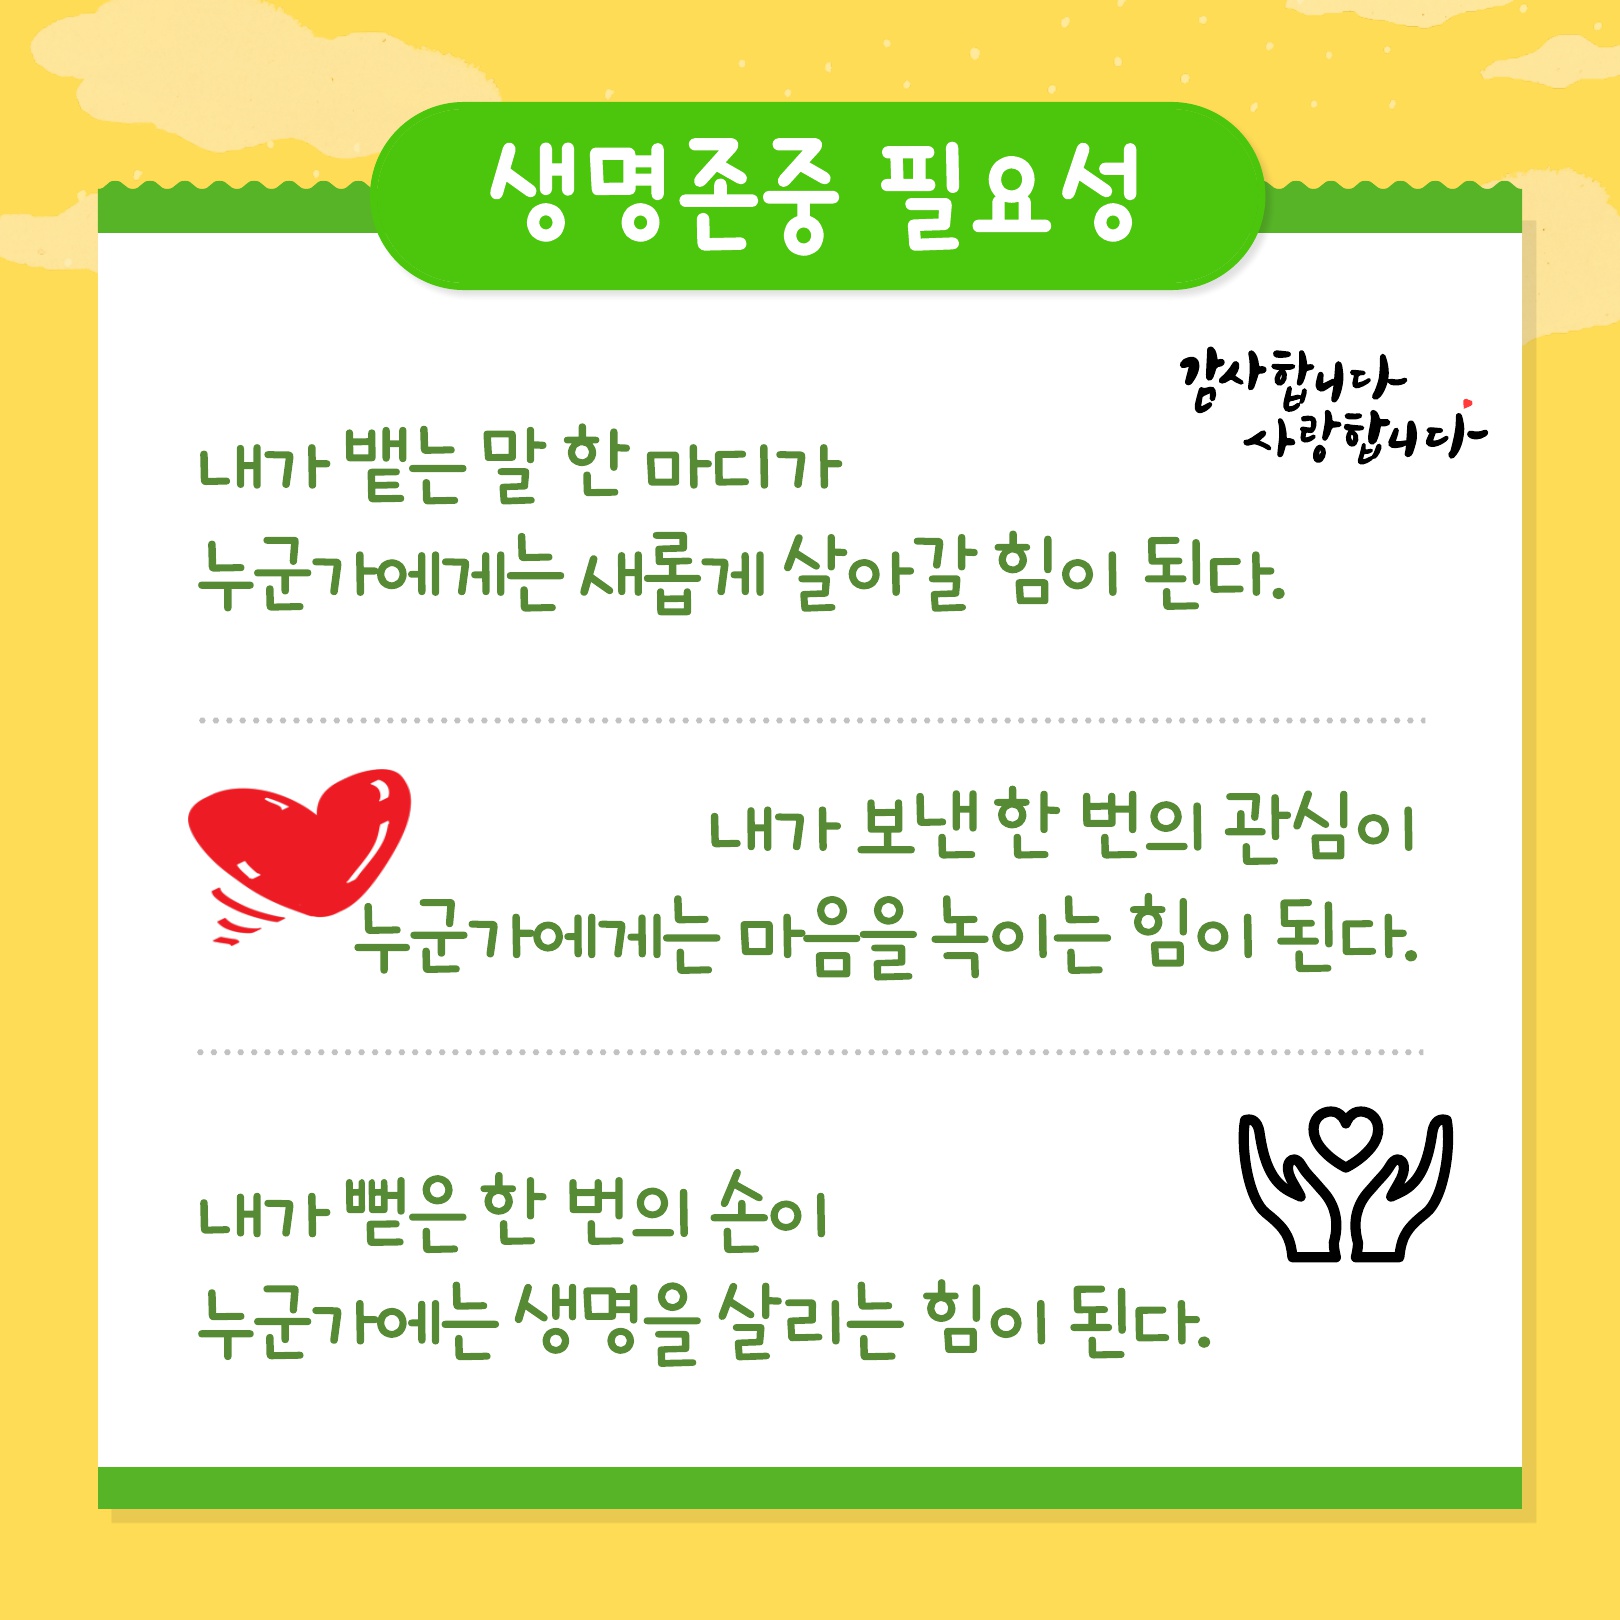 생명존중 필요성
감사합니다
사랑합니다
내가 뱉는 말 한 마디가
누군가에게는 새롭게 살아갈 힘이 된다.
내가 보낸 한 번의 관심이
누군가에게는 마음을 녹이는 힘이 된다.
내가 뻗은 한 번의 손이
누군가에는 생명을 살리는 힘이 된다.